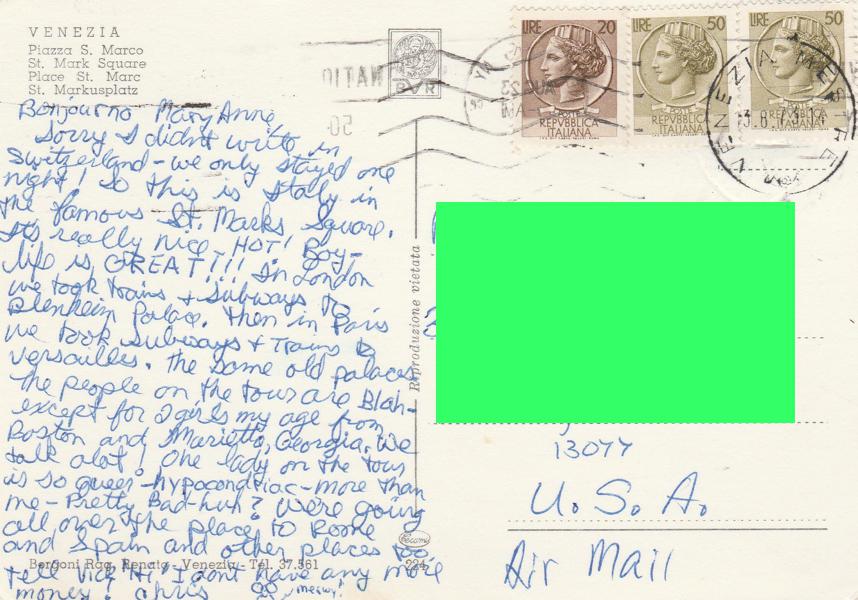 VENEZIA
Piazza S. Marco
St. Mark Square
Place St. Marc
St. Markusplatz
Bonjourno Mary Anne,
Sorry I didnt write in
Switzerland - we only stayed one
night! So this is Italy in
the famous St. Marks Square.
Its really nice HOT! Boy-
life is GREAT!!! In London
we took trains + subways to
Blenheim Palace. Then in Paris
we took subways + trains to
Versailles. The same old palaces.
The people on the tour are Blah-
except for 2 girls my age from
Boston and Marietta, Georgia. We
talk alot! One lady on the tour
is so queer-hypocondtiac-more than
me-Pretty Bad-huh? We're going
all over the place to Rome
and Spain and other places too
tell Vicy Hi! I dont have any more
money! Chris meow!
Borgoni Rag. Renato - Venezia - Tel. 37.561
224
Riproduzione vietata
BVR
LIRE 20
REPVBBLICA
ITALIANA
LIRE 50
REPVBBLICA
ITALIANA
50
REPVBBLICA
ITALIANA
VENEZIA MESTRE
13077
U.S.A.
Air Mail